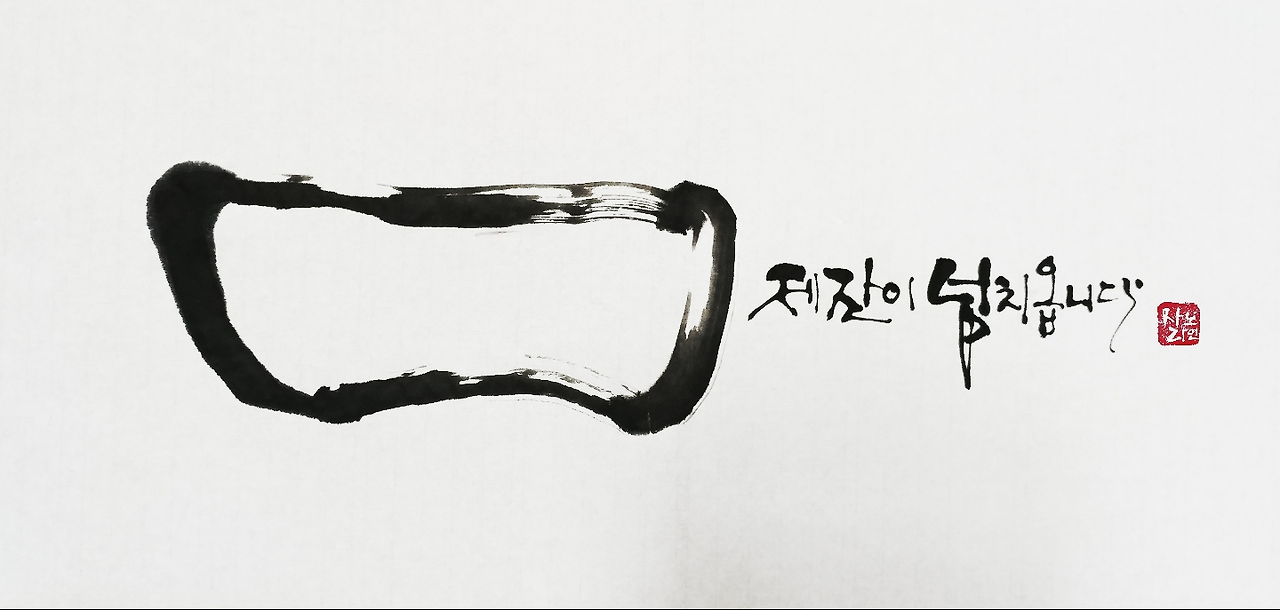 제 잔이 넘치옵니다